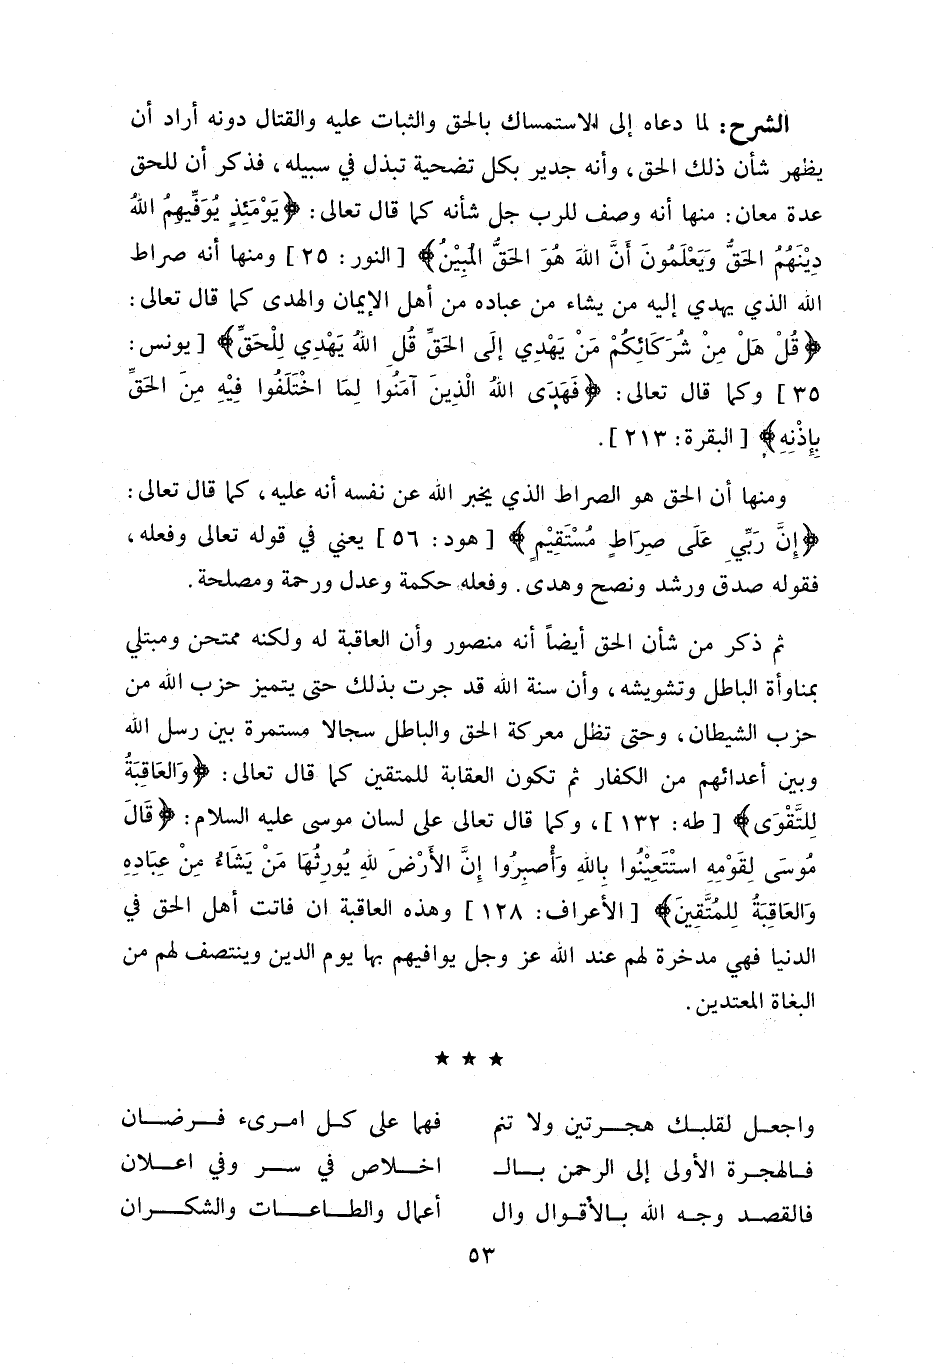 الشرح: لما دعاه إلى الاستمساك بالحق والثبات عليه والقتال دونه أراد أن
يظهر شأن ذلك الحق، وأنه جدير بكل تضحية تبذل في سبيله، فذكر أن للحق
عدة معان: منها أنه وصف للرب جل شأنه كما قال تعالى: ﴿يَوْمَئِذٍ يُوَفِّيهِمُ اللهُ
دِيْنَهُمُ الحَقُّ وَيَعْلَمُونَ أَنَّ اللهَ هُوَ الحَقُّ المُبِيْنُ﴾ [النور: ٢٥] ومنها أنه صراط
الله الذي يهدي إليه من يشاء من عباده من أهل الإيمان والهدى كما قال تعالى:
﴿قُلْ هَلْ مِنْ شُرَكَائِكُمْ مَنْ يَهْدِي إِلَى الحَقِّ قُلِ اللهُ يَهْدِي لِلْحَقِّ﴾ [يونس:
٣٥] وكما قال تعالى: ﴿فَهَدَى اللهُ الَّذِينَ آمَنُوا لِمَا اخْتَلَفُوا فِيْهِ مِنَ الحَقِّ
بِإِذْنِهِ﴾ [البقرة: ٢١٣].
ومنها أن الحق هو الصراط الذي يخبر الله عن نفسه أنه عليه، كما قال تعالى:
﴿إِنَّ رَبِّي عَلَى صِرَاطٍ مُسْتَقِيْمٍ﴾ [هود: ٥٦] يعني في قوله تعالى وفعله،
فقوله صدق ورشد ونصح وهدى. وفعله حكمة وعدل ورحمة ومصلحة.
ثم ذكر من شأن الحق أيضاً أنه منصور وأن العاقبة له ولكنه ممتحن ومبتلي
بمناوأة الباطل وتشويشه، وأن سنة الله قد جرت بذلك حتى يتميز حزب الله من
حزب الشيطان، وحتى تظل معركة الحق والباطل سجالا مستمرة بين رسل الله
وبين أعدائهم من الكفار ثم تكون العقابة للمتقين كما قال تعالى: ﴿وَالعَاقِبَةُ
لِلتَّقْوَى﴾ [طه: ١٣٢]، وكما قال تعالى على لسان موسى عليه السلام: ﴿قَالَ
مُوسَى لِقَوْمِهِ اسْتَعِيْنُوا بِاللهِ وَأَصبِرُوا إِنَّ الأَرْضَ للهِ يُورِثُهَا مَنْ يَشَاءُ مِنْ عِبَادِهِ
وَالعَاقِبَةُ لِلمُتَّقِينَ﴾ [الأعراف: ١٢٨] وهذه العاقبة ان فاتت أهل الحق في
الدنيا فهي مدخرة لهم عند الله عز وجل يوافيهم بها يوم الدين وينتصف لهم من
البغاة المعتدين.
★ ★ ★
واجعـل لقلبـك هجـرتين ولا تنم فهما على كـل امـرىء فـرضـان
فـالهجـرة الأولى إلى الرحمن بـالـ اخـلاص في سـر وفي اعـلان
فالقصـد وجـه الله بـالأقـوال وال أعمال والطـاعـات والشكـران
٥٣